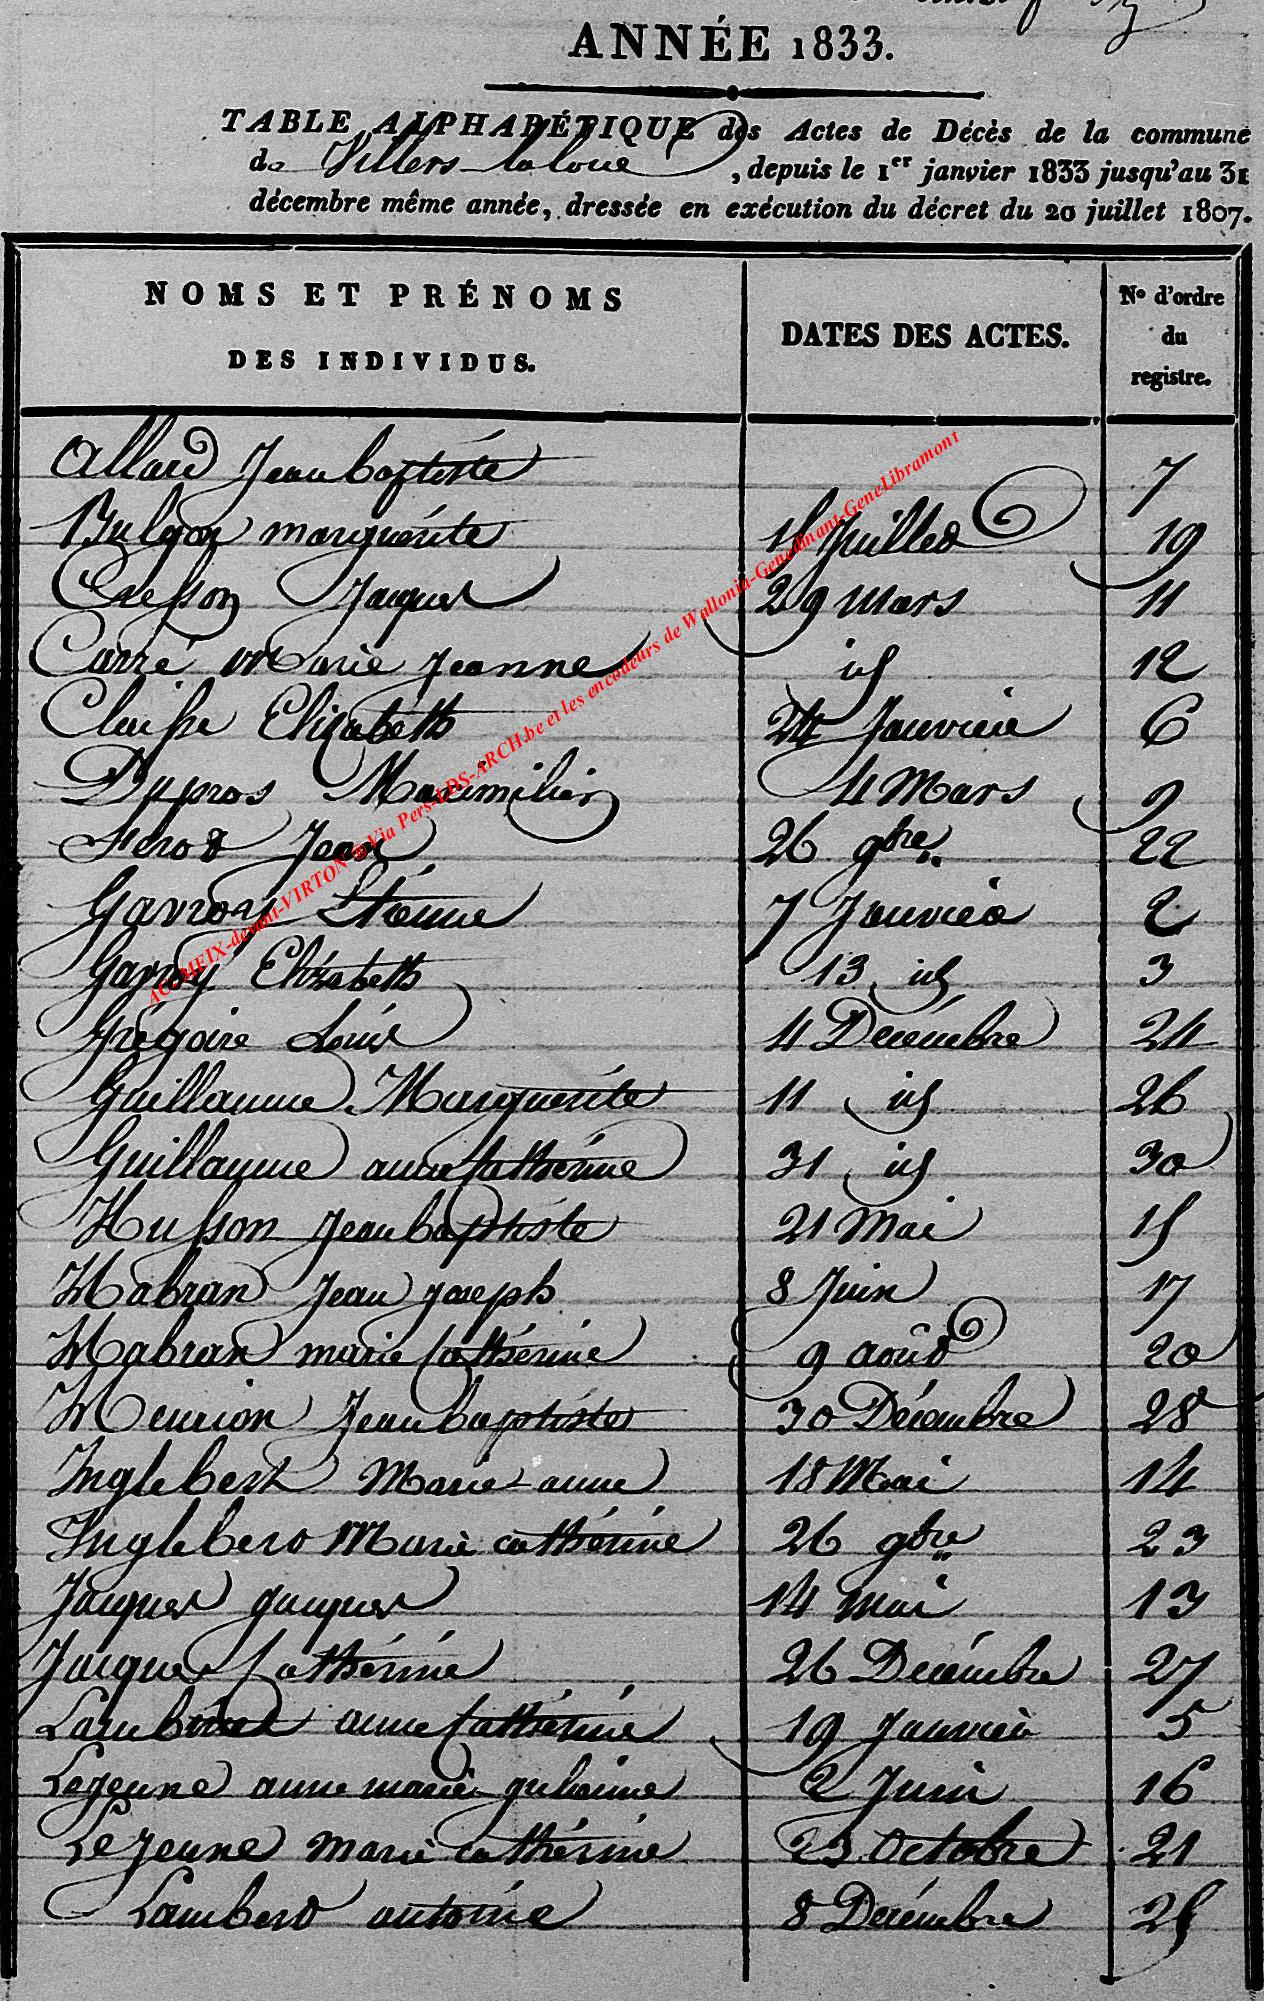 ANNÉE 1833.
TABLE ALPHABÉTIQUE des Actes de Décès de la commune
de Villers-la loue, depuis le 1er janvier 1833 jusqu'au 31
décembre même année, dressée en exécution du décret du 20 juillet 1807.
NOMS ET PRÉNOMS DES INDIVIDUS. DATES DES ACTES. No d'ordre du registre.
Allard Jean baptiste 7
marguerite Juillet 19
Cresson Jacques 29 Mars 11
Carré Marie Jeanne id 12
Claisse Elizabeth 24 Janvier 6
Dupros Maximilien 4 Mars 9
Jean 26 9bre 22
Gavroy Etienne 7 Janvier 2
Gavroy Elizabeth 13 id 3
Grégoire Louis 4 Décémbre 24
Guillaume Marguerite 11 id 26
Guillaume anne Cathérine 31 id 30
Husson Jean baptiste 21 Mai 15
Habran Jean joseph 8 Juin 17
Habran marie Cathérine 9 août 20
Henrion Jean baptiste 30 Décembre 28
Inglebert Marie-anne 18 Mai 14
Inglebert Marie cathérine 26 9bre 23
Jacques jacques 14 Mai 13
Jacques Cathérine 26 Decémbre 27
anne Cathérine 19 Janvier 5
Lejeune anne marie 2 Juin 16
Lejeune Marie cathérine 23 Octobre 21
Lambert antoine 8 Décémbre 25
ACQ MEIX-devant-VIRTON @ Via Pers-LDS-ARCH.be et les encodeurs de Wallonia-Genedinant-GeneLibramont